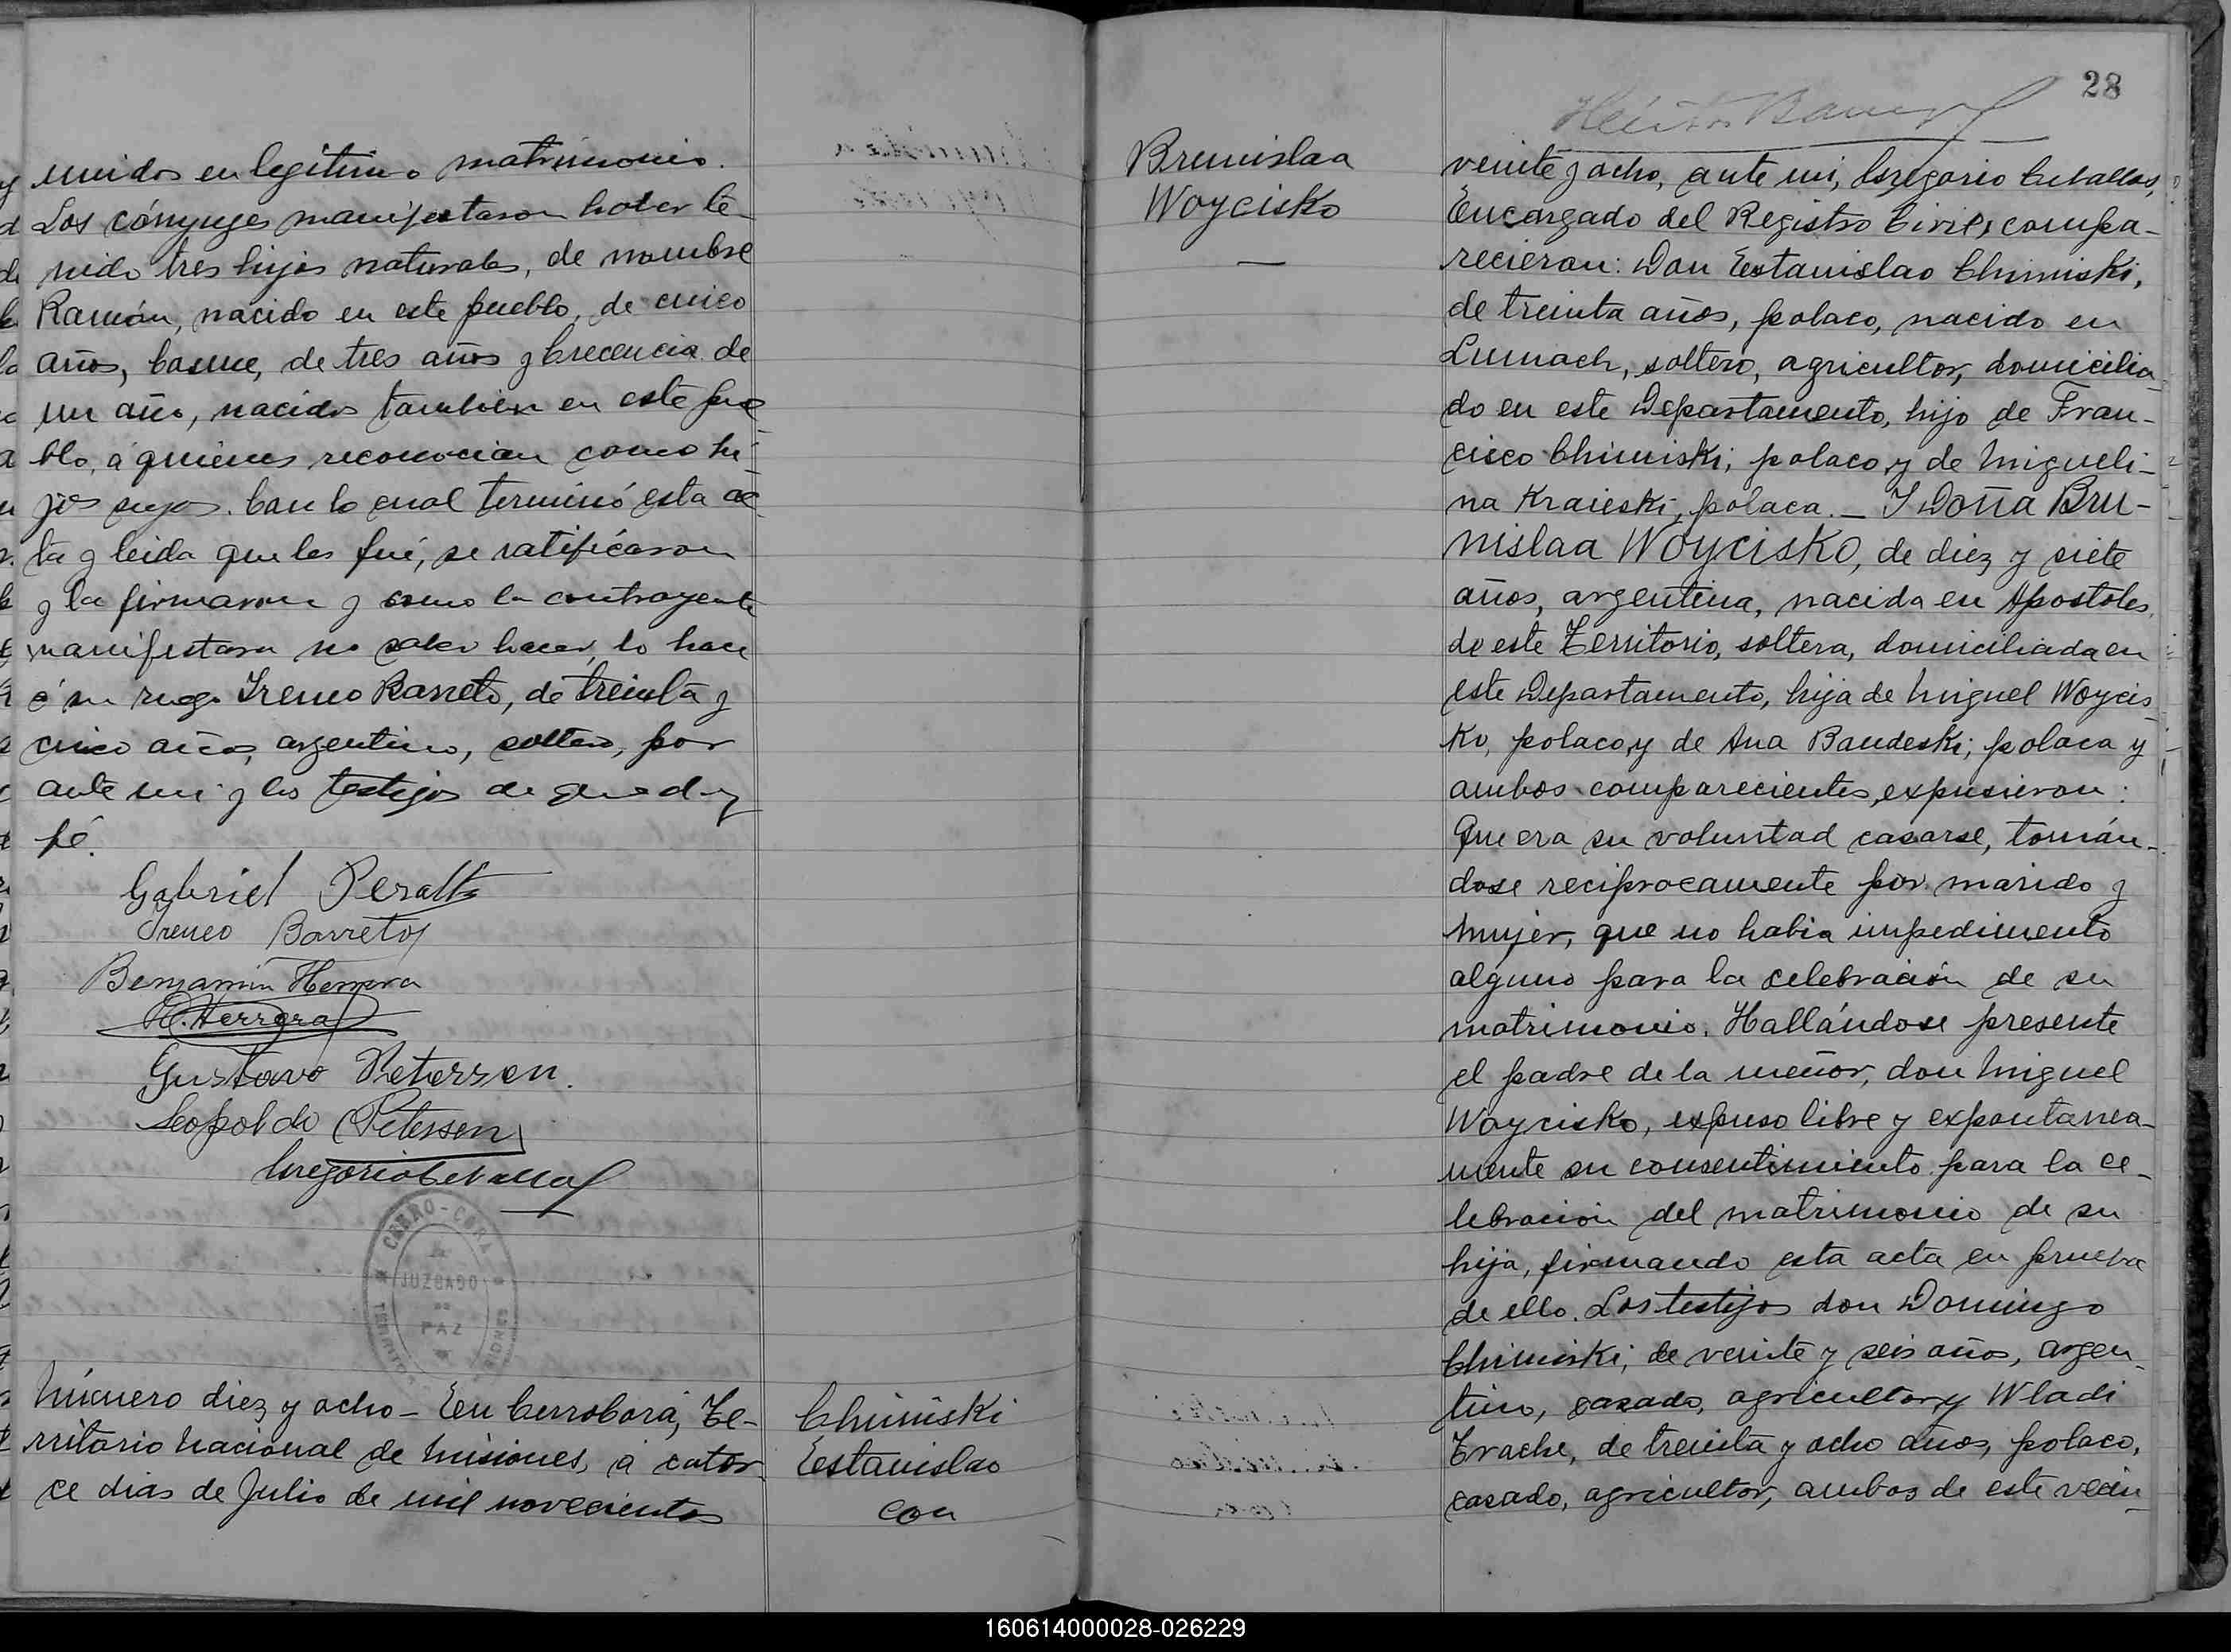 unidos en legitimo matrimonio.
Los cónyuges manifestaron haber te-
nido tres hijos naturales, de nombre
Ramón, nacido en este pueblo, de cinco
años, Cosme, de tres años y Crecencia de
un año, nacidos tambien en este pue-
blo, á quienes reconocian como hi-
jos suyos. Con lo cual terminó esta ac-
ta y leida que les fué, se ratificaron
y la firmaron y como la contrayente
manifestara no saber hacer, lo hace
á su ruego Ireneo Barreto, de treinta y
cinco años, argentino, soltero, por
ante mi y los testigos de que doy
fé.
Gabriel Peralta
Ireneo Barreto
Benjamin Herrera
Herrera
Gustavo Petersen.
Leopoldo Petersen
Gregorio Ceballos
CERRO-CORA
JUZGADO
DE
PAZ
Número diez y ocho - En Cerrocorá, Te-
rritorio Nacional de Misiones, á cator-
ce dias de Julio de mil novecientos
Chiminski
Estanislao
con
Brunislaa
Woycisko
28
veinte y ocho, ante mi, Gregorio Ceballos,
Encargado del Registro Civil, compa-
recieron: Don Estanislao Chimiski,
de treinta años, polaco, nacido en
Lumach, soltero, agricultor, domicilia-
do en este Departamento, hijo de Fran-
cisco Chimiski, polaco y de Migueli-
na Kraieski, polaca. - Y Doña Bru-
nislaa Woycisko, de diez y siete
años, argentina, nacida en Apostoles,
de este Territorio, soltera, domiciliada en
este Departamento, hija de Miguel Woycis-
ko, polaco, y de Ana Bandeski; polaca y
ambos comparecientes, expusieron:
Que era su voluntad casarse, tomán-
dose reciprocamente por marido y
mujer, que no habia impedimento
alguno para la celebración de su
matrimonio. Hallándose presente
el padre de la menor, don Miguel
Woycisko, expuso libre y expontanea-
mente su consentimiento para la ce-
lebracion del matrimonio de su
hija, firmando esta acta en prueba
de ello. Los testigos don Domingo
Chimiski, de veinte y seis años, argen-
tino, casado, agricultor y Wladi
Trache, de treinta y ocho años, polaco,
casado, agricultor, ambos de este vecin-
160614000028-026229